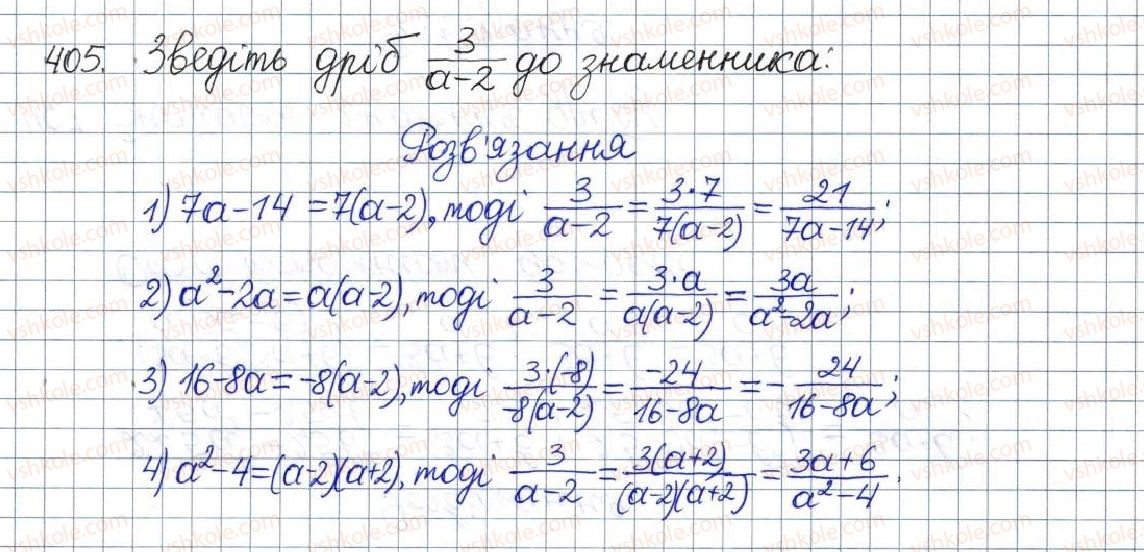 405. Зведіть дріб 3/(a-2) до знаменника:
Розв'язання
1) 7a-14 = 7(a-2), тоді 3/(a-2) = 3·7/(7(a-2)) = 21/(7a-14);
2) a²-2a = a(a-2), тоді 3/(a-2) = 3·a/(a(a-2)) = 3a/(a²-2a);
3) 16-8a = -8(a-2), тоді 3·(-8)/(-8(a-2)) = -24/(16-8a) = - 24/(16-8a);
4) a²-4 = (a-2)(a+2), тоді 3/(a-2) = 3(a+2)/((a-2)(a+2)) = (3a+6)/(a²-4).